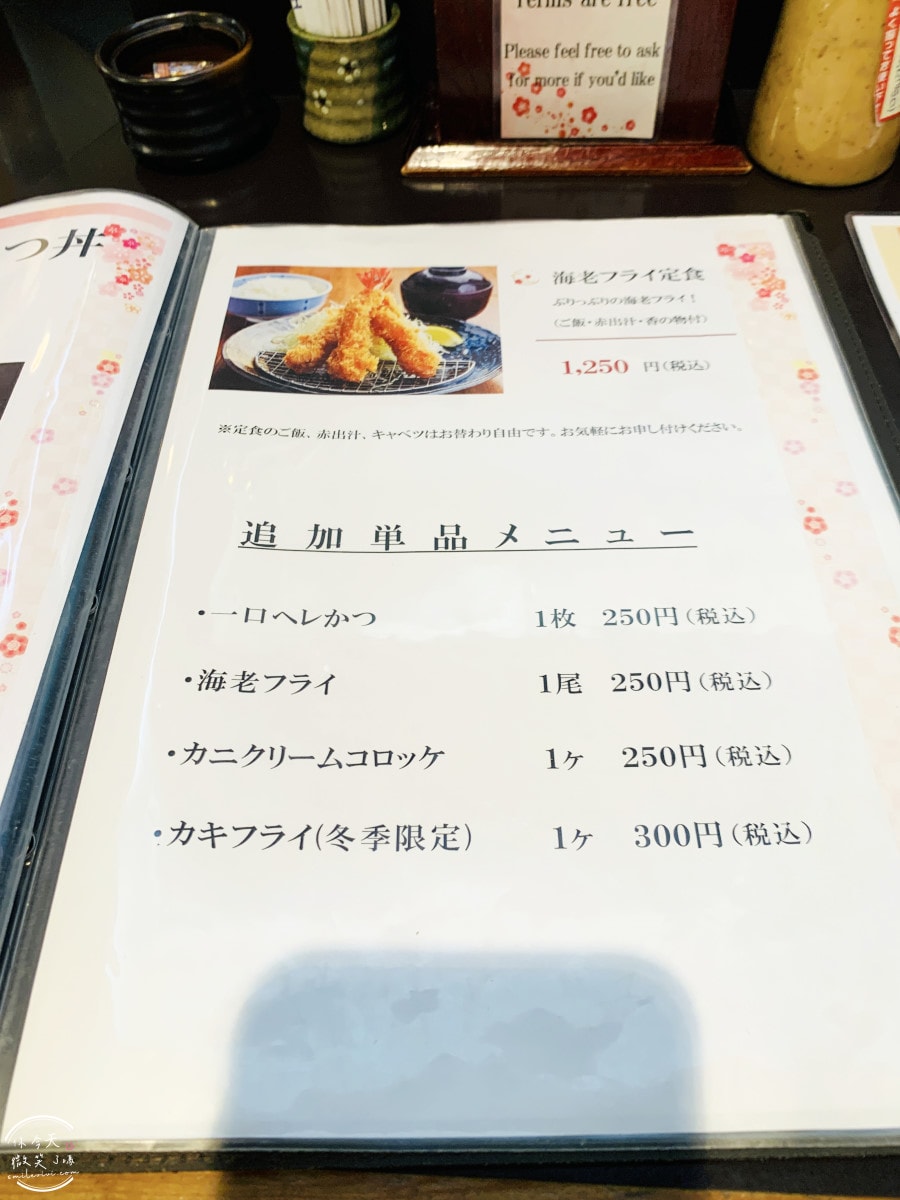 Terms are free
Please feel free to ask
for more if you'd like
つ丼
海老フライ定食
ぷりっぷりの海老フライ！
（ご飯・赤出汁・香の物付）
1,250 円（税込）
※定食のご飯、赤出汁、キャベツはお替わり自由です。お気軽にお申し付けください。
追加単品メニュー
・一口ヘレかつ 1枚 250円（税込）
・海老フライ 1尾 250円（税込）
・カニクリームコロッケ 1ヶ 250円（税込）
・カキフライ(冬季限定) 1ヶ 300円（税込）
你今天
微笑了嗎